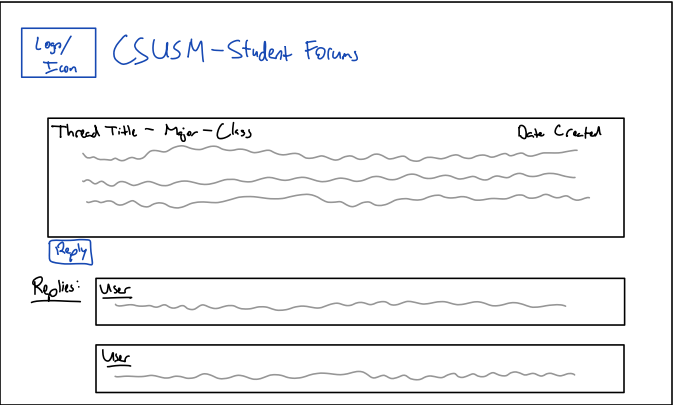 Logo/
Icon
CSUSM - Student Forums
Thread Title - Major - Class
Date Created
Reply
Replies:
User
User